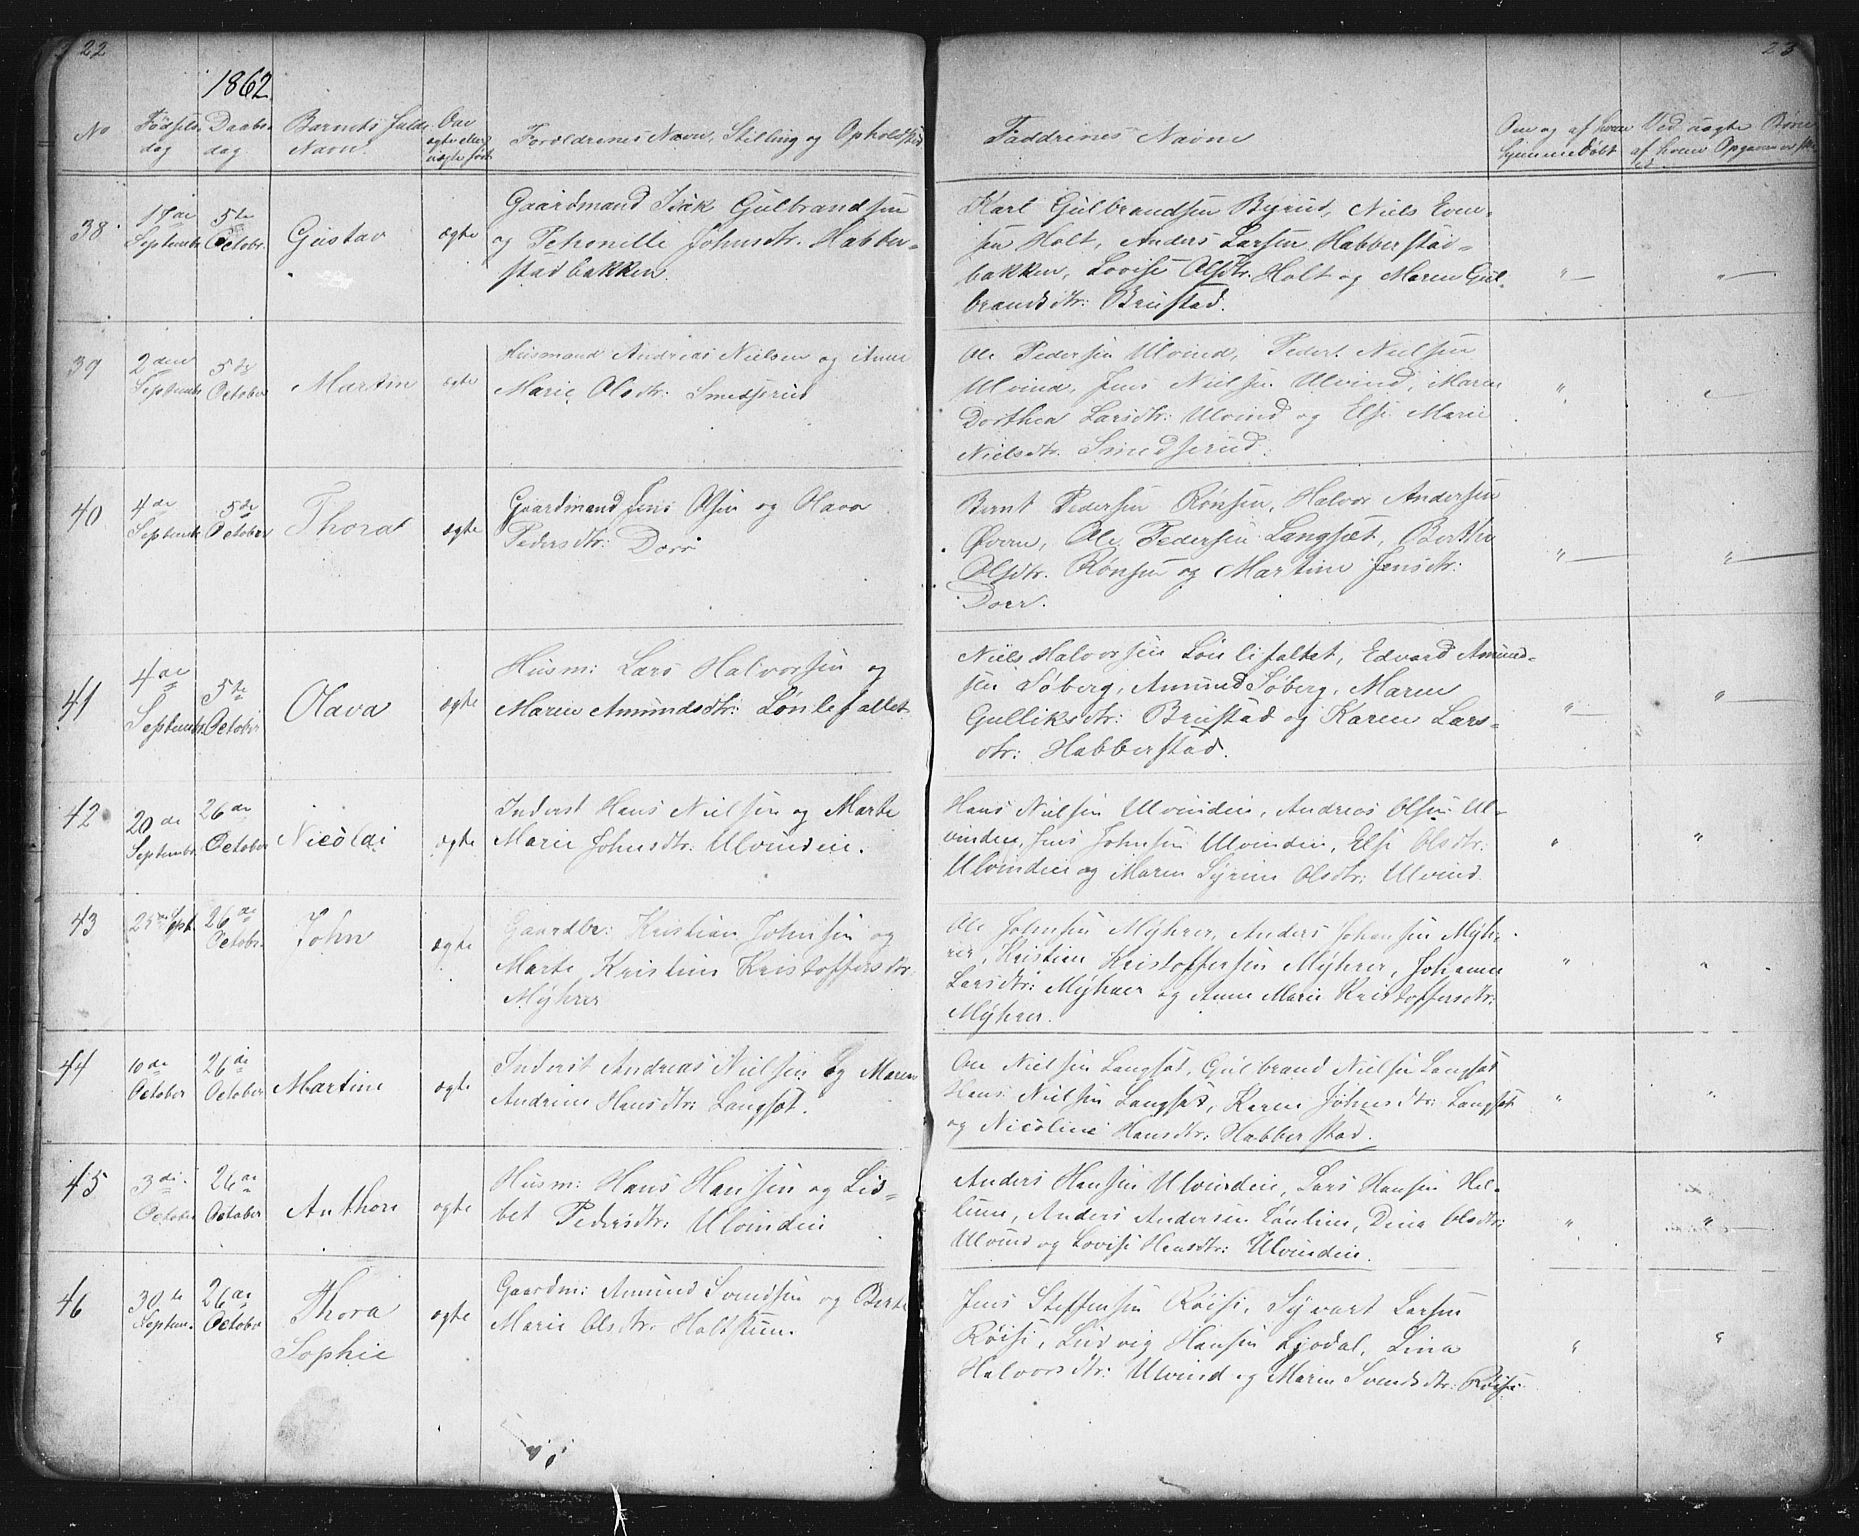 22
1862.
No
Fødsels-
dag
Daabs-
dag
Barnets fulde
Navn.
Om
ægte eller
uægte født
Forældrenes Navn, Stilling og Opholdsted
38.
17de
Septembr.
5te
Octobr.
Gustav
ægte
Gaardmand Isak Gulbrandsen
og Petronille Johnsdtr. Habber-
stadbakken.
39
2den
Septembr
5te
October
Martin
ægte
Husmand Andreas Nielsen og Anne
Marie Olsdtr. Smedserud
40
4de
Septembr
5te
October
Thora
ægte
Gaardmand Jens Olsen og Olava
Pedersdtr: Dorr
41
4de
Septembr.
5te
October
Olava
ægte
Husm: Lars Halvorsen og
Maren Amundsdtr: Lønlefallet
42
20de
Septembr.
26de
October
Nicolai
ægte
Inderst Hans Nielsen og Marte
Marie Johnsdtr: Ulvindeie.
43
Sept.
26de
Octobr.
John
ægte
Gaardbr: Kristian Johnsen og
Marte Kristine Kristoffersdtr.
Myhrer
44
10de
October
26de
October
Martine
ægte
Inderst Andreas Nielsen og Maren
Andrine Hansdtr: Langset.
45
3die
October
26de
October
Anthon
ægte
Husm: Hans Hansen og Lis-
bet Pedersdtr: Ulvindeie
46
30te
Septem.
26de
October
Thora
Sophie
ægte
Gaardm: Amund Svendsen og Berte
Marie Olsdtr. Holtskum.
23
Faddernes Navne
Om og af hvem
hjemmedøbt
Ved uægte Børn
af hvem Opgaven er
Karl Gulbrandsen Byrud, Niels Even-
sen Holt, Anders Larsen Habberstad-
bakken, Lovise Olsdtr. Holt og Maren Gul-
brandsdtr: Brustad.
" —
" —
Ole Pedersen Ulvind, Peder Nielsen
Ulvind, Jens Nielsen Ulvind, Maren
Dorthea Larsdtr: Ulvind og Else Marie
Nielsdtr. Smedserud.
"
"
Bernt Pedersen Rønsen, Halvor Andersen
Øvern, Ole Pedersen Langset, Berthe
Olsdtr. Rønsen og Martine Jensdtr:
Dorr.
" —
" —
Niels Halvorsen Lønlifallet, Edvard Amund-
sen Søberg, Amund Søberg, Maren
Gulliksdtr: Brustad og Karen Lars-
dtr: Habberstad.
" —
" —
Hans Nielsen Ulvindeie, Andreas Olsen Ul-
vindeie, Jens Johnsen Ulvindeie, Else Olsdtr:
Ulvindeie og Maren Syrine Olsdtr: Ulvind.
"
"
Ole Johnsen Myhrer, Anders Johansen Myh-
rer, Kristian Kristoffersen Myhrer, Johanne
Larsdtr: Myhrer og Anne Marie Kristoffersdtr:
Myhrer.
"
"
Ole Nielsen Langset, Gulbrand Nielsen Langset
Hans Nielsen Langset, Karen Johnsdtr: Langset
og Nicoline Hansdtr: Habberstad.
"
"
Anders Hansen Ulvindeie, Lars Hansen Hel-
lum, Anders Andersen Lønlien, Dina Olsdtr:
Ulvind og Lovise Hansdtr: Ulvindeie.
"
" —
Jens Steffensen Røise, Syvert Larsen
Røise, Ludvig Hansen Lysdal, Lina
Halvorsdtr: Ulvind og Maren Svendsdtr: Røise
"
"